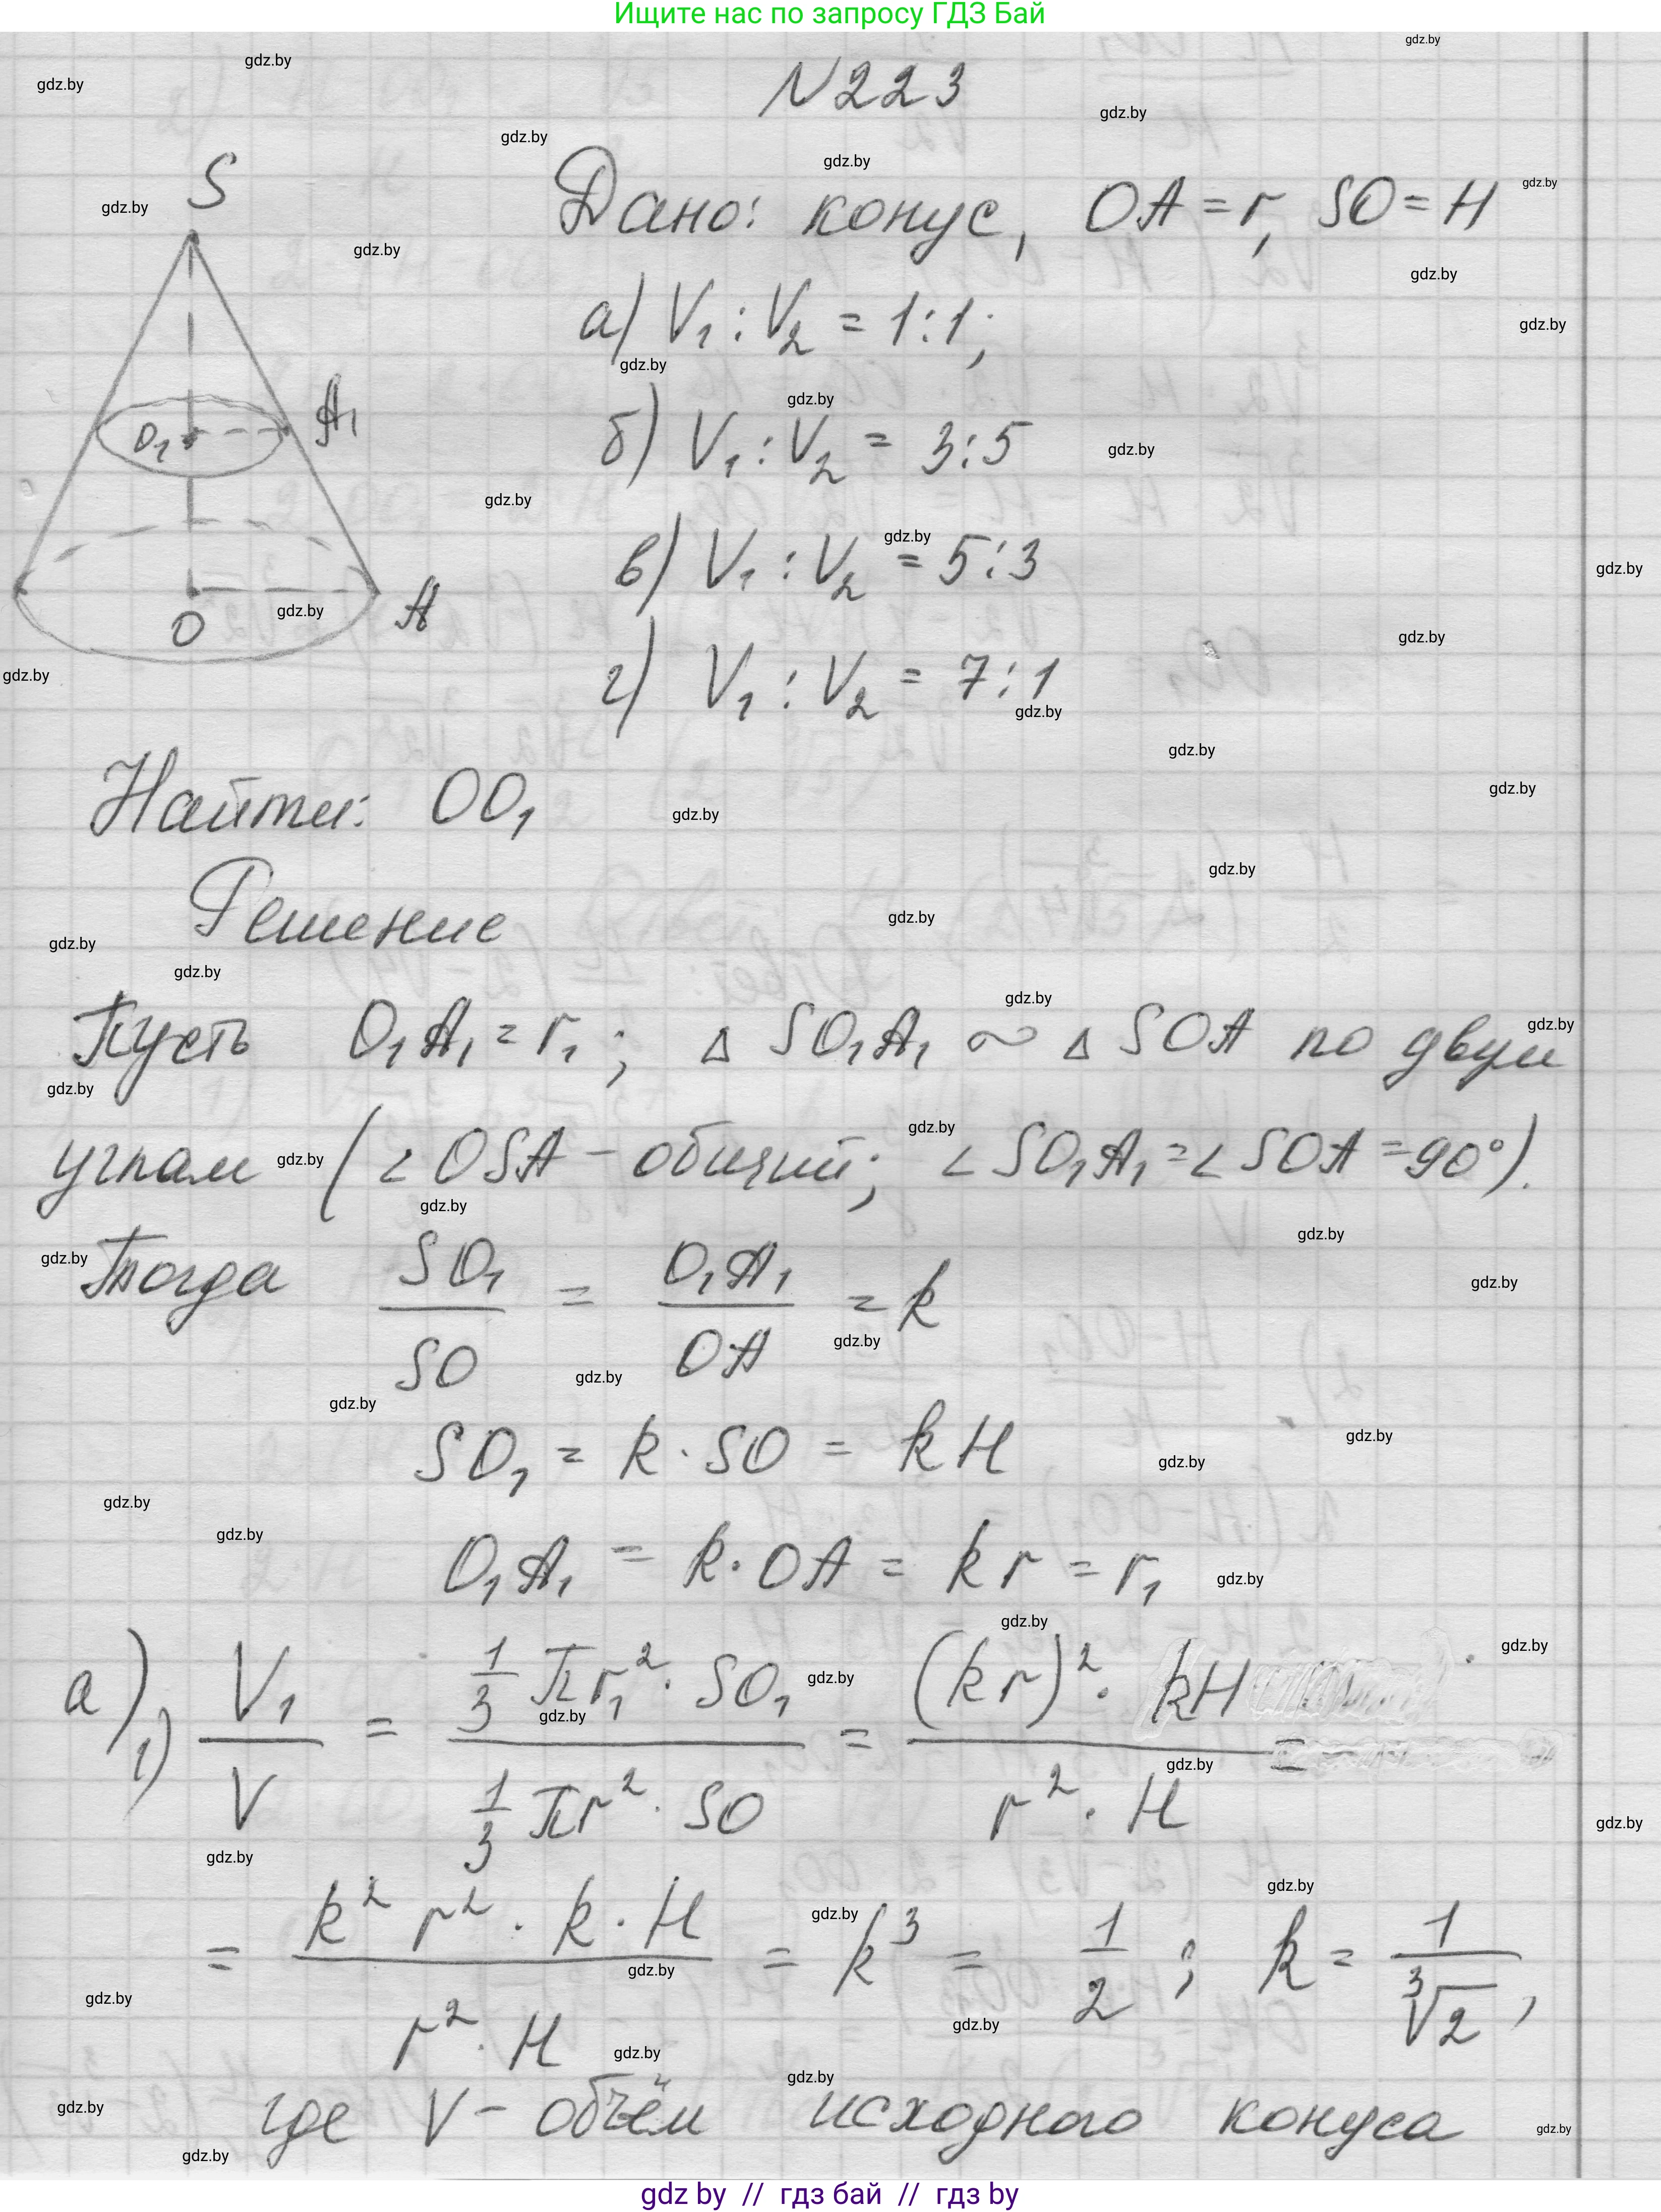 Ищите нас по запросу ГДЗ Бай
N223
Дано: конус, OA = r, SO = H
а) V₁ : V₂ = 1:1;
б) V₁ : V₂ = 3:5
в) V₁ : V₂ = 5:3
г) V₁ : V₂ = 7:1
S
O₁
A₁
O
A
Найти: OO₁
Решение
Пусть O₁A₁ = r₁; △ SO₁A₁ ∾ △ SOA по двум
углам (∠OSA – общий; ∠SO₁A₁ = ∠SOA = 90°).
Тогда SO₁/SO = O₁A₁/OA = k
SO₁ = k · SO = kH
O₁A₁ = k · OA = kr = r₁
а) 1) V₁/V = (1/3 πr₁² · SO₁)/(1/3 πr² · SO) = ((kr)² · kH)/(r² · H) =
= (k² r² · k · H)/(r² · H) = k³ = 1/2 ; k = 1/∛2 ,
где V – объём исходного конуса
gdz by // гдз бай // гдз by